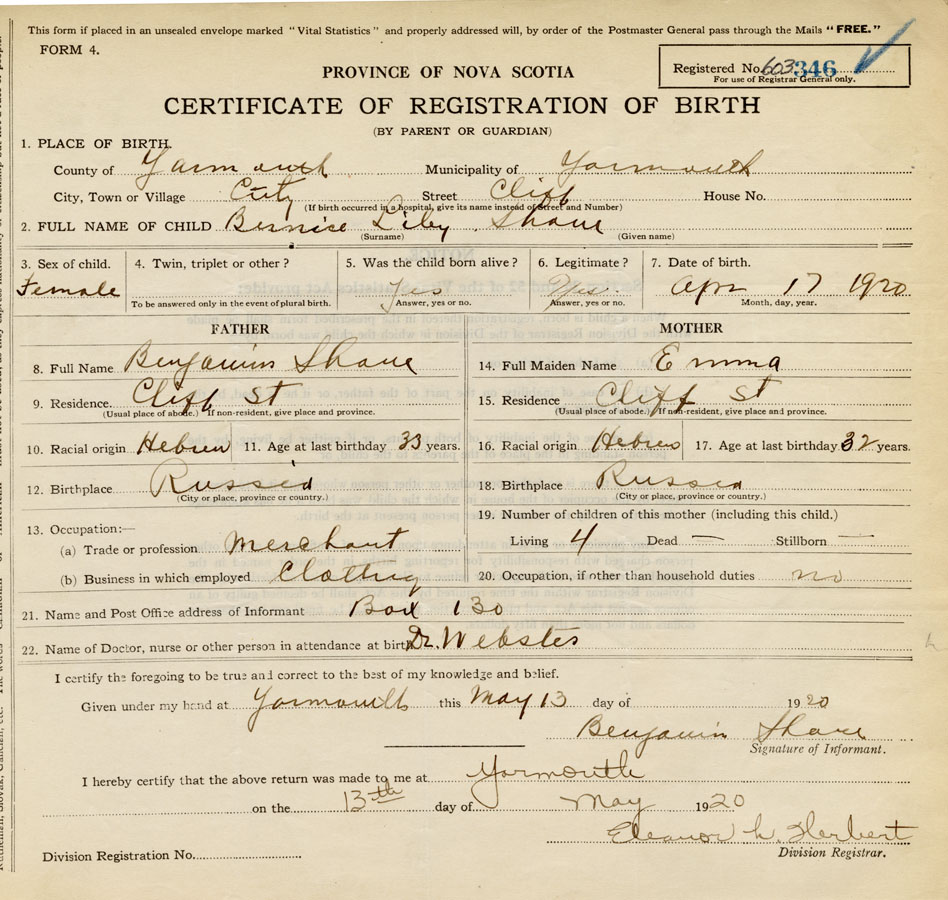 This form if placed in an unsealed envelope marked "Vital Statistics" and properly addressed will, by order of the Postmaster General pass through the Mails "FREE."
FORM 4.
Registered No. 603346
For use of Registrar General only.
PROVINCE OF NOVA SCOTIA
CERTIFICATE OF REGISTRATION OF BIRTH
(BY PARENT OR GUARDIAN)
1. PLACE OF BIRTH.
County of Yarmouth Municipality of Yarmouth
City, Town or Village City Street Cliff House No.
(If birth occurred in a hospital, give its name instead of Street and Number)
2. FULL NAME OF CHILD Bernice Liby Shane
(Surname) (Given name)
3. Sex of child. 4. Twin, triplet or other? 5. Was the child born alive? 6. Legitimate? 7. Date of birth.
Female Yes Yes Apr 17 1920
To be answered only in the event of plural birth. Answer, yes or no. Answer, yes or no. Month, day, year.
FATHER MOTHER
8. Full Name Benjamin Shane 14. Full Maiden Name Emma
9. Residence. Cliff St 15. Residence Cliff St
(Usual place of abode.) If non-resident, give place and province. (Usual place of abode.) If non-resident, give place and province.
10. Racial origin Hebrew 11. Age at last birthday 33 years. 16. Racial origin Hebrew 17. Age at last birthday 32 years.
12. Birthplace Russia 18. Birthplace Russia
(City or place, province or country.) (City or place, province or country.)
13. Occupation:— 19. Number of children of this mother (including this child.)
(a) Trade or profession Merchant Living 4 Dead — Stillborn —
(b) Business in which employed Clothing 20. Occupation, if other than household duties no
21. Name and Post Office address of Informant Box 130
22. Name of Doctor, nurse or other person in attendance at birth Dr. Webster
I certify the foregoing to be true and correct to the best of my knowledge and belief.
Given under my hand at Yarmouth this May 13 day of 1920
Benjamin Shane
Signature of Informant.
I hereby certify that the above return was made to me at Yarmouth
on the 13th day of May 1920
Eleanor L. Herbert
Division Registration No. Division Registrar.